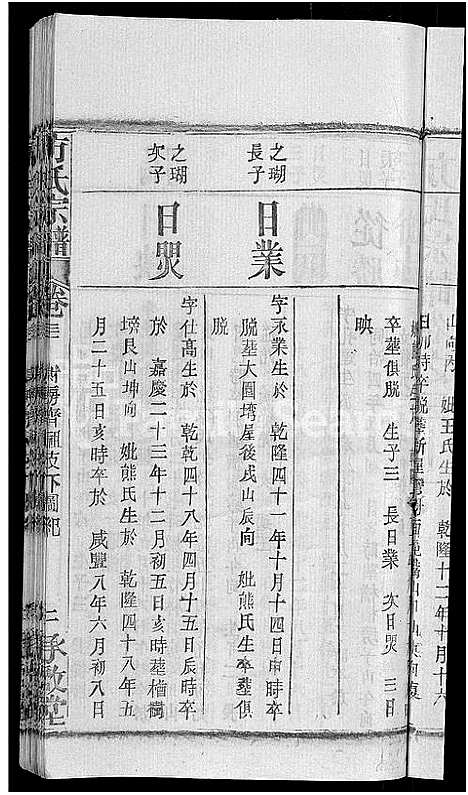 山向內 妣王氏生於 乾隆十二年十月十六
日卯時卒脫葬
卒葬俱脫 生子三 長日業 次日煚 三日
映
之瑚長子
日業
字永業生於 乾隆四十一年十月十四日申時卒
脫葬大圓塆屋後戌山辰向 妣熊氏生卒葬俱
脫
之瑚次子
日煚
字仕高生於 乾隆四十八年四月十五日辰時卒
於 嘉慶二十三年十二月初五日亥時葬楢樹
塝艮山坤向 妣熊氏生於 乾隆四十八年五
月二十五日亥時卒於 咸豐八年六月初八日
方氏宗譜
卷三
承啟堂